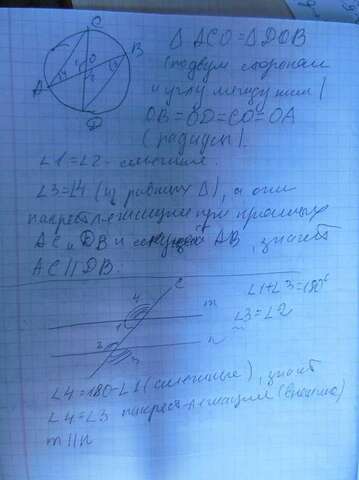 C
B
O
A
D
Δ ACO = Δ DOB
(по двум сторонам
и углу между ним)
OB = OD = CO = OA
(радиусы).
∠1 = ∠2 -
∠3 = ∠4 (из равных Δ), а они
накрест лежащие при прямых
AC и DB и секущей AB, значит
AC || DB.
C
4
m
1
2
n
3
∠1 + ∠3 = 180°
∠3 = ∠2
∠4 = 180 - ∠1 (смежные), значит
∠4 = ∠3 накрест-лежащие (внешние)
m || n